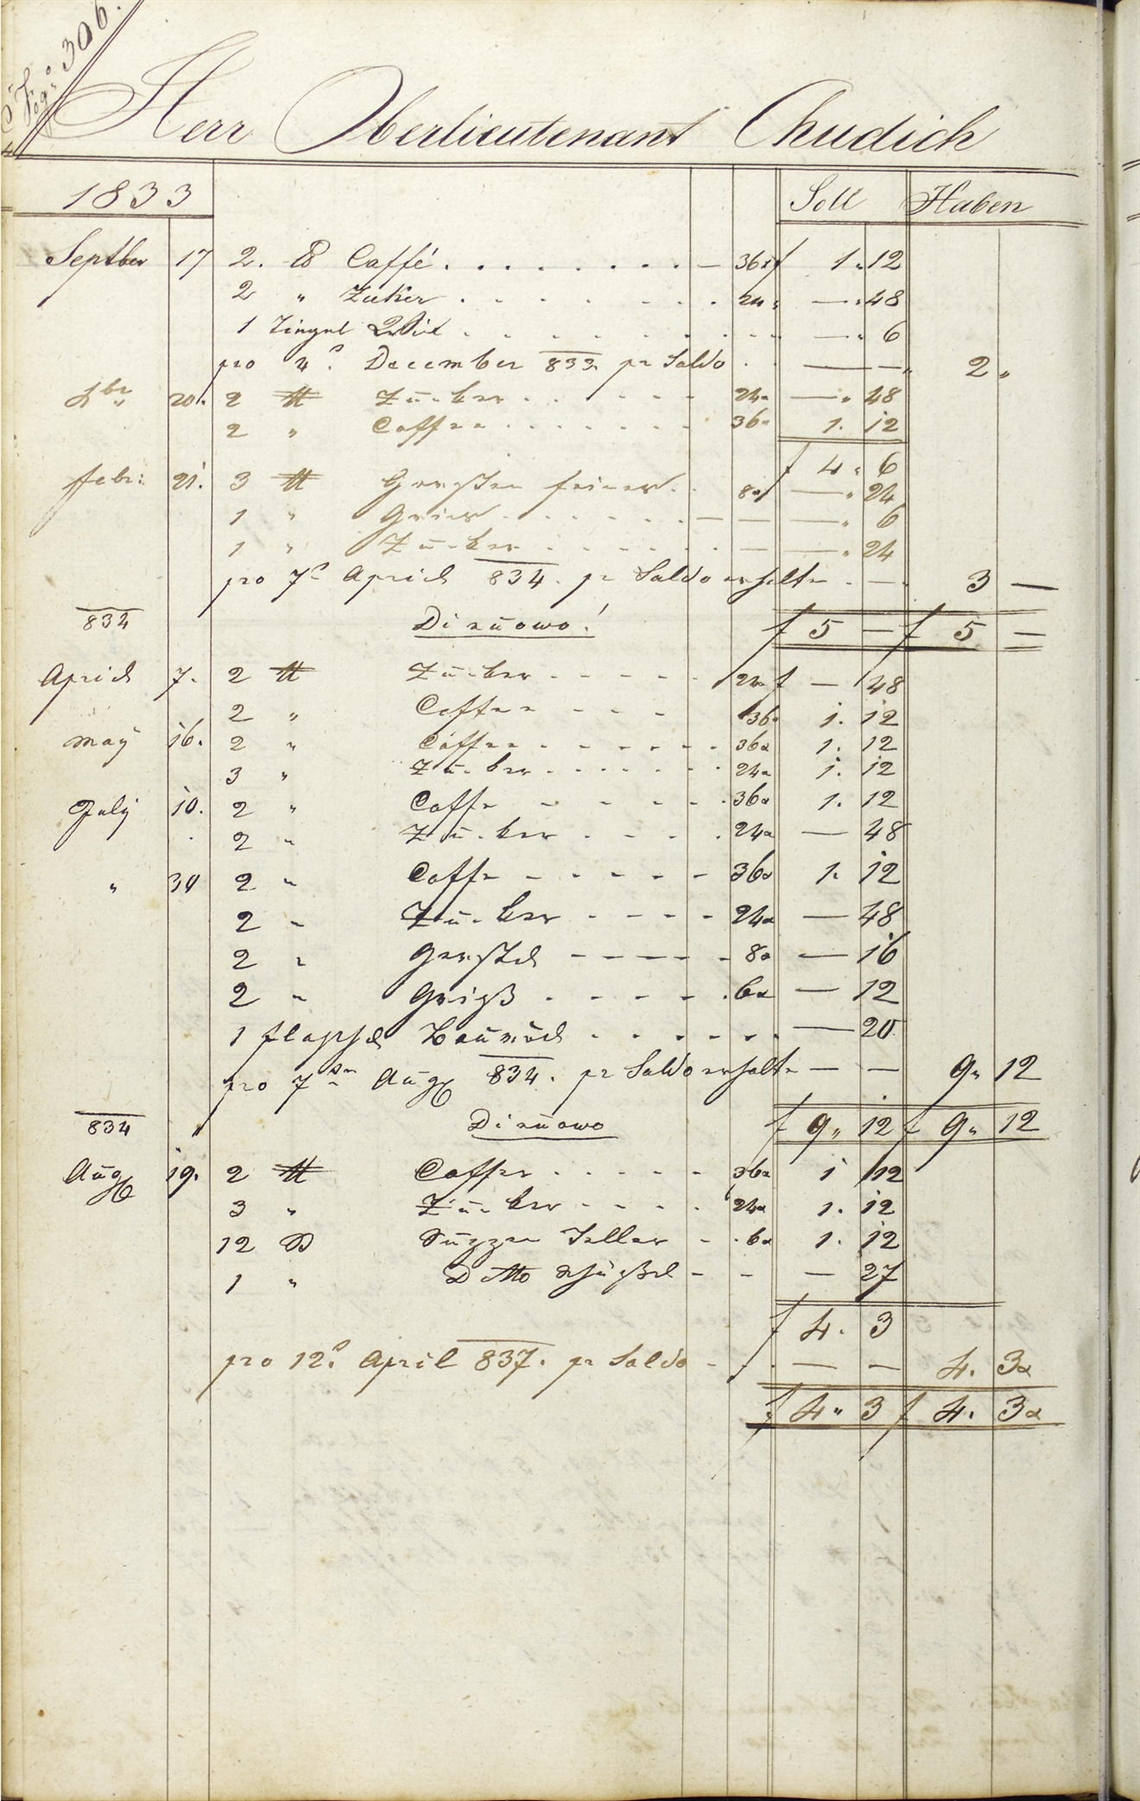 306.
Herr Oberlieutenant Chudich
1833 Soll Haben
Septber 17 2. ℔ Caffé . . . . . . . . — 36x f 1„12
2 „ Zuker . . . . . . . 24„ —„48
1 . . . . . . . . —„6
pro 4ᵗ. December 833. pr Saldo . — — 2„
Xbr 20. 2 ℔ Zucker . . . . . . 24x —„48
2 „ Caffee . . . . . . . 36x 1. 12
f 4„6
Febr: 21. 3 ℔ Gersten feiner . . 8x —„24
1 „ Gries . . . . . . — — —„6
1 „ Zucker . . . . . . — —„24
pro 7ᵗ April 834. pr Saldo erhalten . — 3 —
834 Di nuovo! f 5 — f 5 —
April 7. 2 ℔ Zucker . . . . . 24x f — 48
2 „ Caffee - - - 36x 1. 12
May 16. 2 „ Caffee . . . . . . 36x 1. 12
3 „ Zucker . . . . . . 24x 1. 12
July 10. 2 „ Caffe - - - - . 36x 1. 12
2 „ Zucker . . . . 24x — 48
„ 30 2 „ Caffe - - - - - 36x 1. 12
2 „ Zucker - - - - 24x — 48
2 „ Gerstel - - - - - 8x — 16
2 „ Grieß . . . . . 6x — 12
1 Flaschel Baumöl . . . . . . — 20
pro 7ᵗᵉⁿ Aug 834. pr Saldo erhalten — — 9„12
f 9„12 f 9„12
834 „ Di nuovo
Aug 19. 2 ℔ Caffee . . . . . 36x 1 12
3 „ Zucker - - - . 24x 1. 12
12 Suppen Teller - . 6x 1. 12
1 „ Ditto Schüßel - - — 27
f 4. 3
pro 12ᵗ. April 837. pr Saldo - . . — — 4. 3x
f 4„3 f 4. 3x